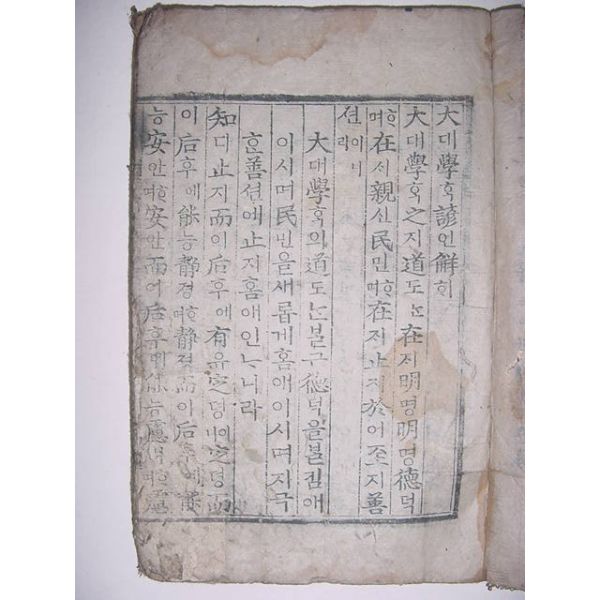 大대學ᄒᆞᆨ諺언解ᄒᆡ
大대學ᄒᆞᆨ之지道도ᄂᆞᆫ在ᄌᆡ明명明명德덕
ᄒᆞ며在ᄌᆡ親신民민ᄒᆞ며在ᄌᆡ止지於어至지善
션이니라
大대學ᄒᆞᆨ의道도ᄂᆞᆫᄇᆞᆯᄀᆞᆫ德덕을ᄇᆞᆯ킴애
이시며民민을새롭게홈애이시며지극
ᄒᆞᆫ善션애止지홈애인ᄂᆞ니라
知디止지而이后후에有유定뎡이니定뎡而
이后후에能능靜졍ᄒᆞ며靜졍而이后후에能
능安안ᄒᆞ며安안而이后후에能능慮려ᄒᆞ며慮